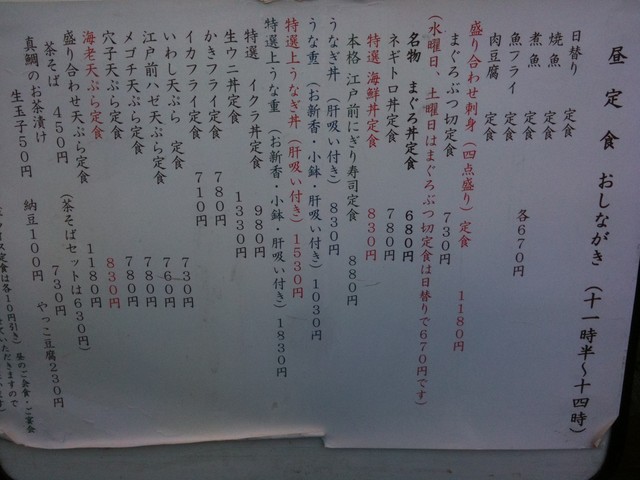 昼定食 おしながき (十一時半〜十四時)
日替り 定食
焼魚 定食
煮魚 定食
魚フライ 定食 各670円
肉豆腐 定食
盛り合わせ刺身(四点盛り)定食 1180円
まぐろぶつ切定食 730円
(水曜日、土曜日はまぐろぶつ切定食は日替りで670円です)
名物 まぐろ丼定食 680円
ネギトロ丼定食 780円
特選 海鮮丼定食 830円
本格 江戸前にぎり寿司定食 880円
うなぎ丼 (肝吸い付き) 830円
うな重 (お新香・小鉢・肝吸い付き) 1030円
特選上うなぎ丼 (肝吸い付き) 1530円
特選 上うな重 (お新香・小鉢・肝吸い付き) 1830円
特選 イクラ丼定食 980円
生ウニ丼定食 1330円
かきフライ定食 780円
イカフライ定食 710円
いわし天ぷら 定食 730円
江戸前ハゼ天ぷら定食 760円
メゴチ天ぷら定食 780円
穴子天ぷら定食 780円
海老天ぷら定食 830円
盛り合わせ天ぷら定食 1180円
茶そば 450円 (茶そばセットは630円)
真鯛のお茶漬け 730円
生玉子50円 納豆100円 やっこ豆腐230円
ス定食は各10円引き) 昼のご会食・ご宴会
いただきますので